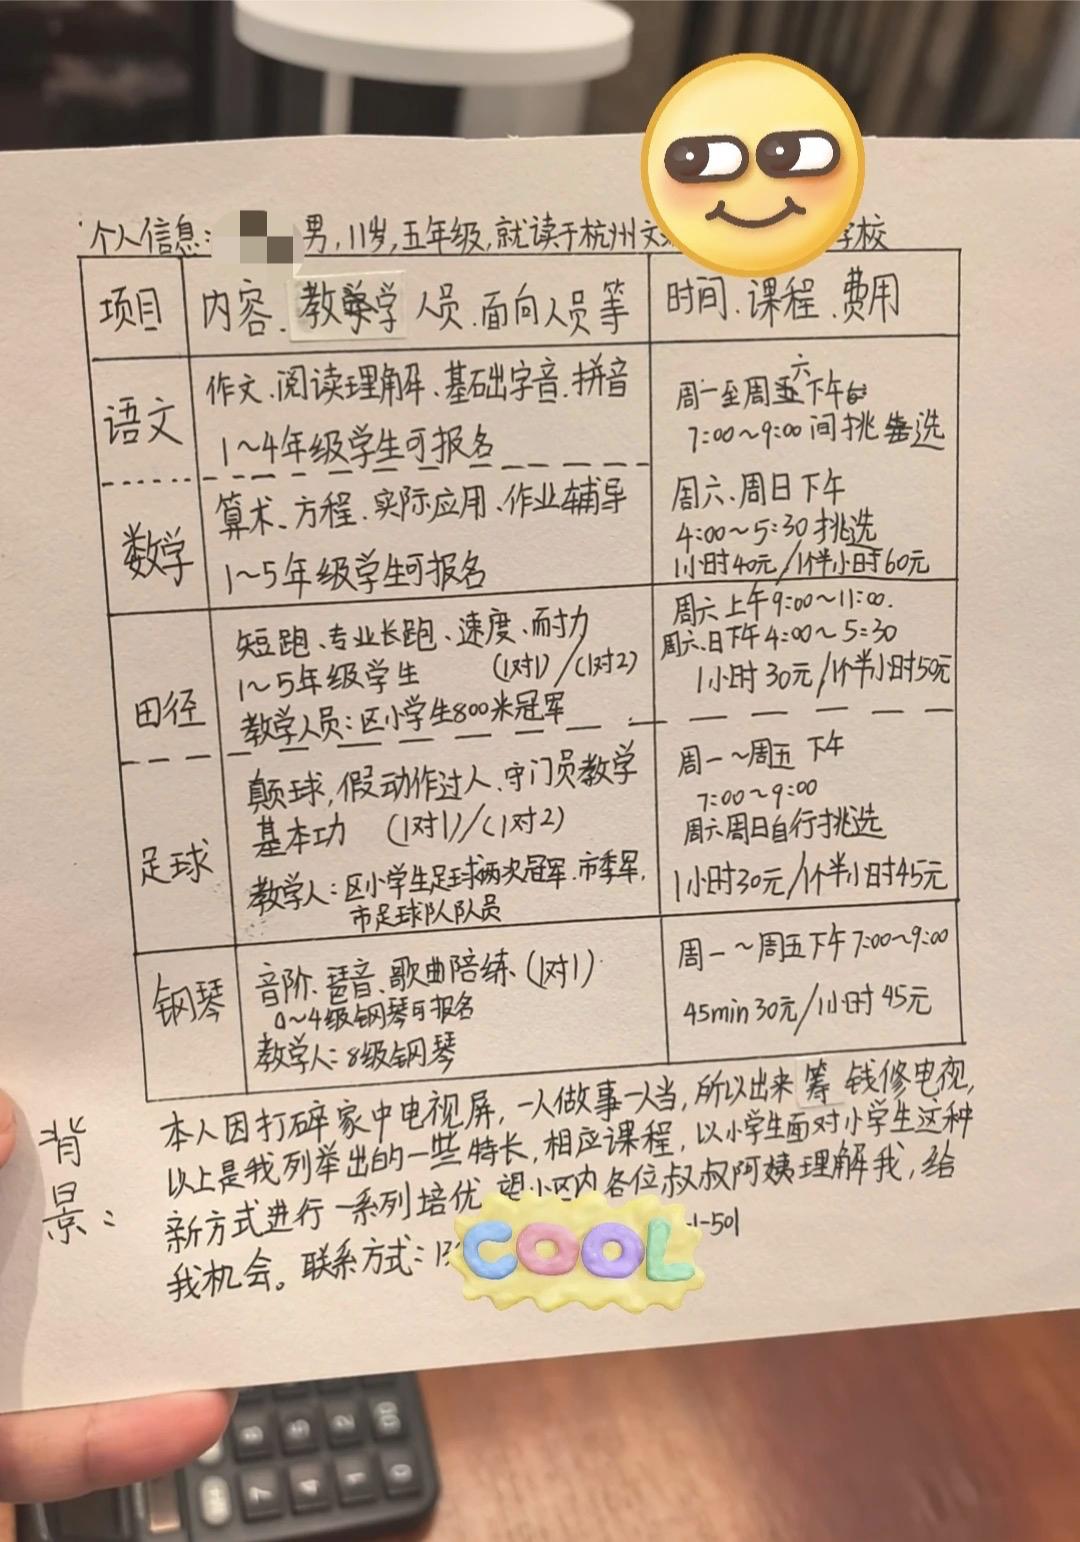 个人信息: 男,11岁,五年级,就读于杭州文 学校
项目 内容、教学人员、面向人员等 时间、课程、费用
语文
作文、阅读理解、基础字音、拼音
1~4年级学生可报名
数学
算术、方程、实际应用、作业辅导
1~5年级学生可报名
周一至周六下午
7:00~9:00间挑选
周六、周日下午
4:00~5:30挑选
1小时40元/1个半小时60元
田径
短跑、专业长跑、速度、耐力
1~5年级学生 (1对1)/(1对2)
教学人员:区小学生800米冠军
周六上午9:00~11:00.
周六、日下午4:00~5:30
1小时30元/1个半小时50元
足球
颠球,假动作过人、守门员教学
基本功 (1对1)/(1对2)
教学人:区小学生足球两次冠军、市季军,
市足球队队员
周一~周五下午
7:00~9:00
周六周日自行挑选
1小时30元/1个半小时45元
钢琴
音阶、琶音、歌曲陪练、(1对1)
0~4级钢琴可报名
教学人:8级钢琴
周一~周五下午7:00~9:00
45min30元/1小时45元
背景:
本人因打碎家中电视屏,一人做事一人当,所以出来筹钱修电视,
以上是我列举出的一些特长,相应课程,以小学生面对小学生这种
新方式进行一系列培优 望小区内各位叔叔阿姨理解我,给
我机会。联系方式:13 1-501
COOL
8 5 2 00
7 4 1 0